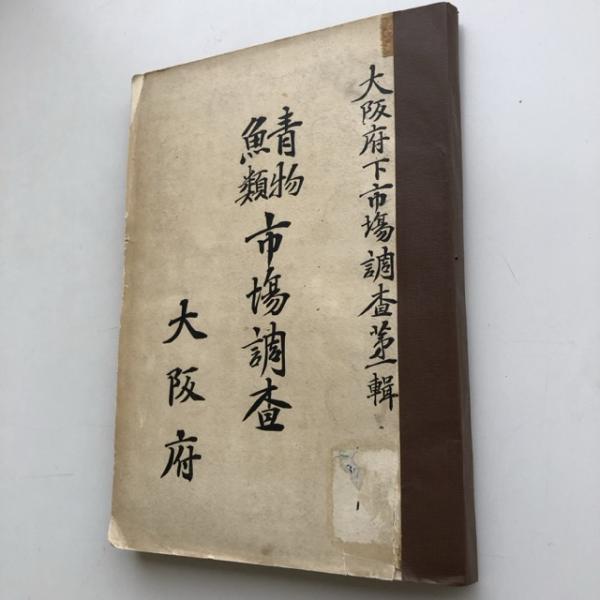 大阪府下市場調査第一輯
青物
魚類
市場調査
大阪府
1